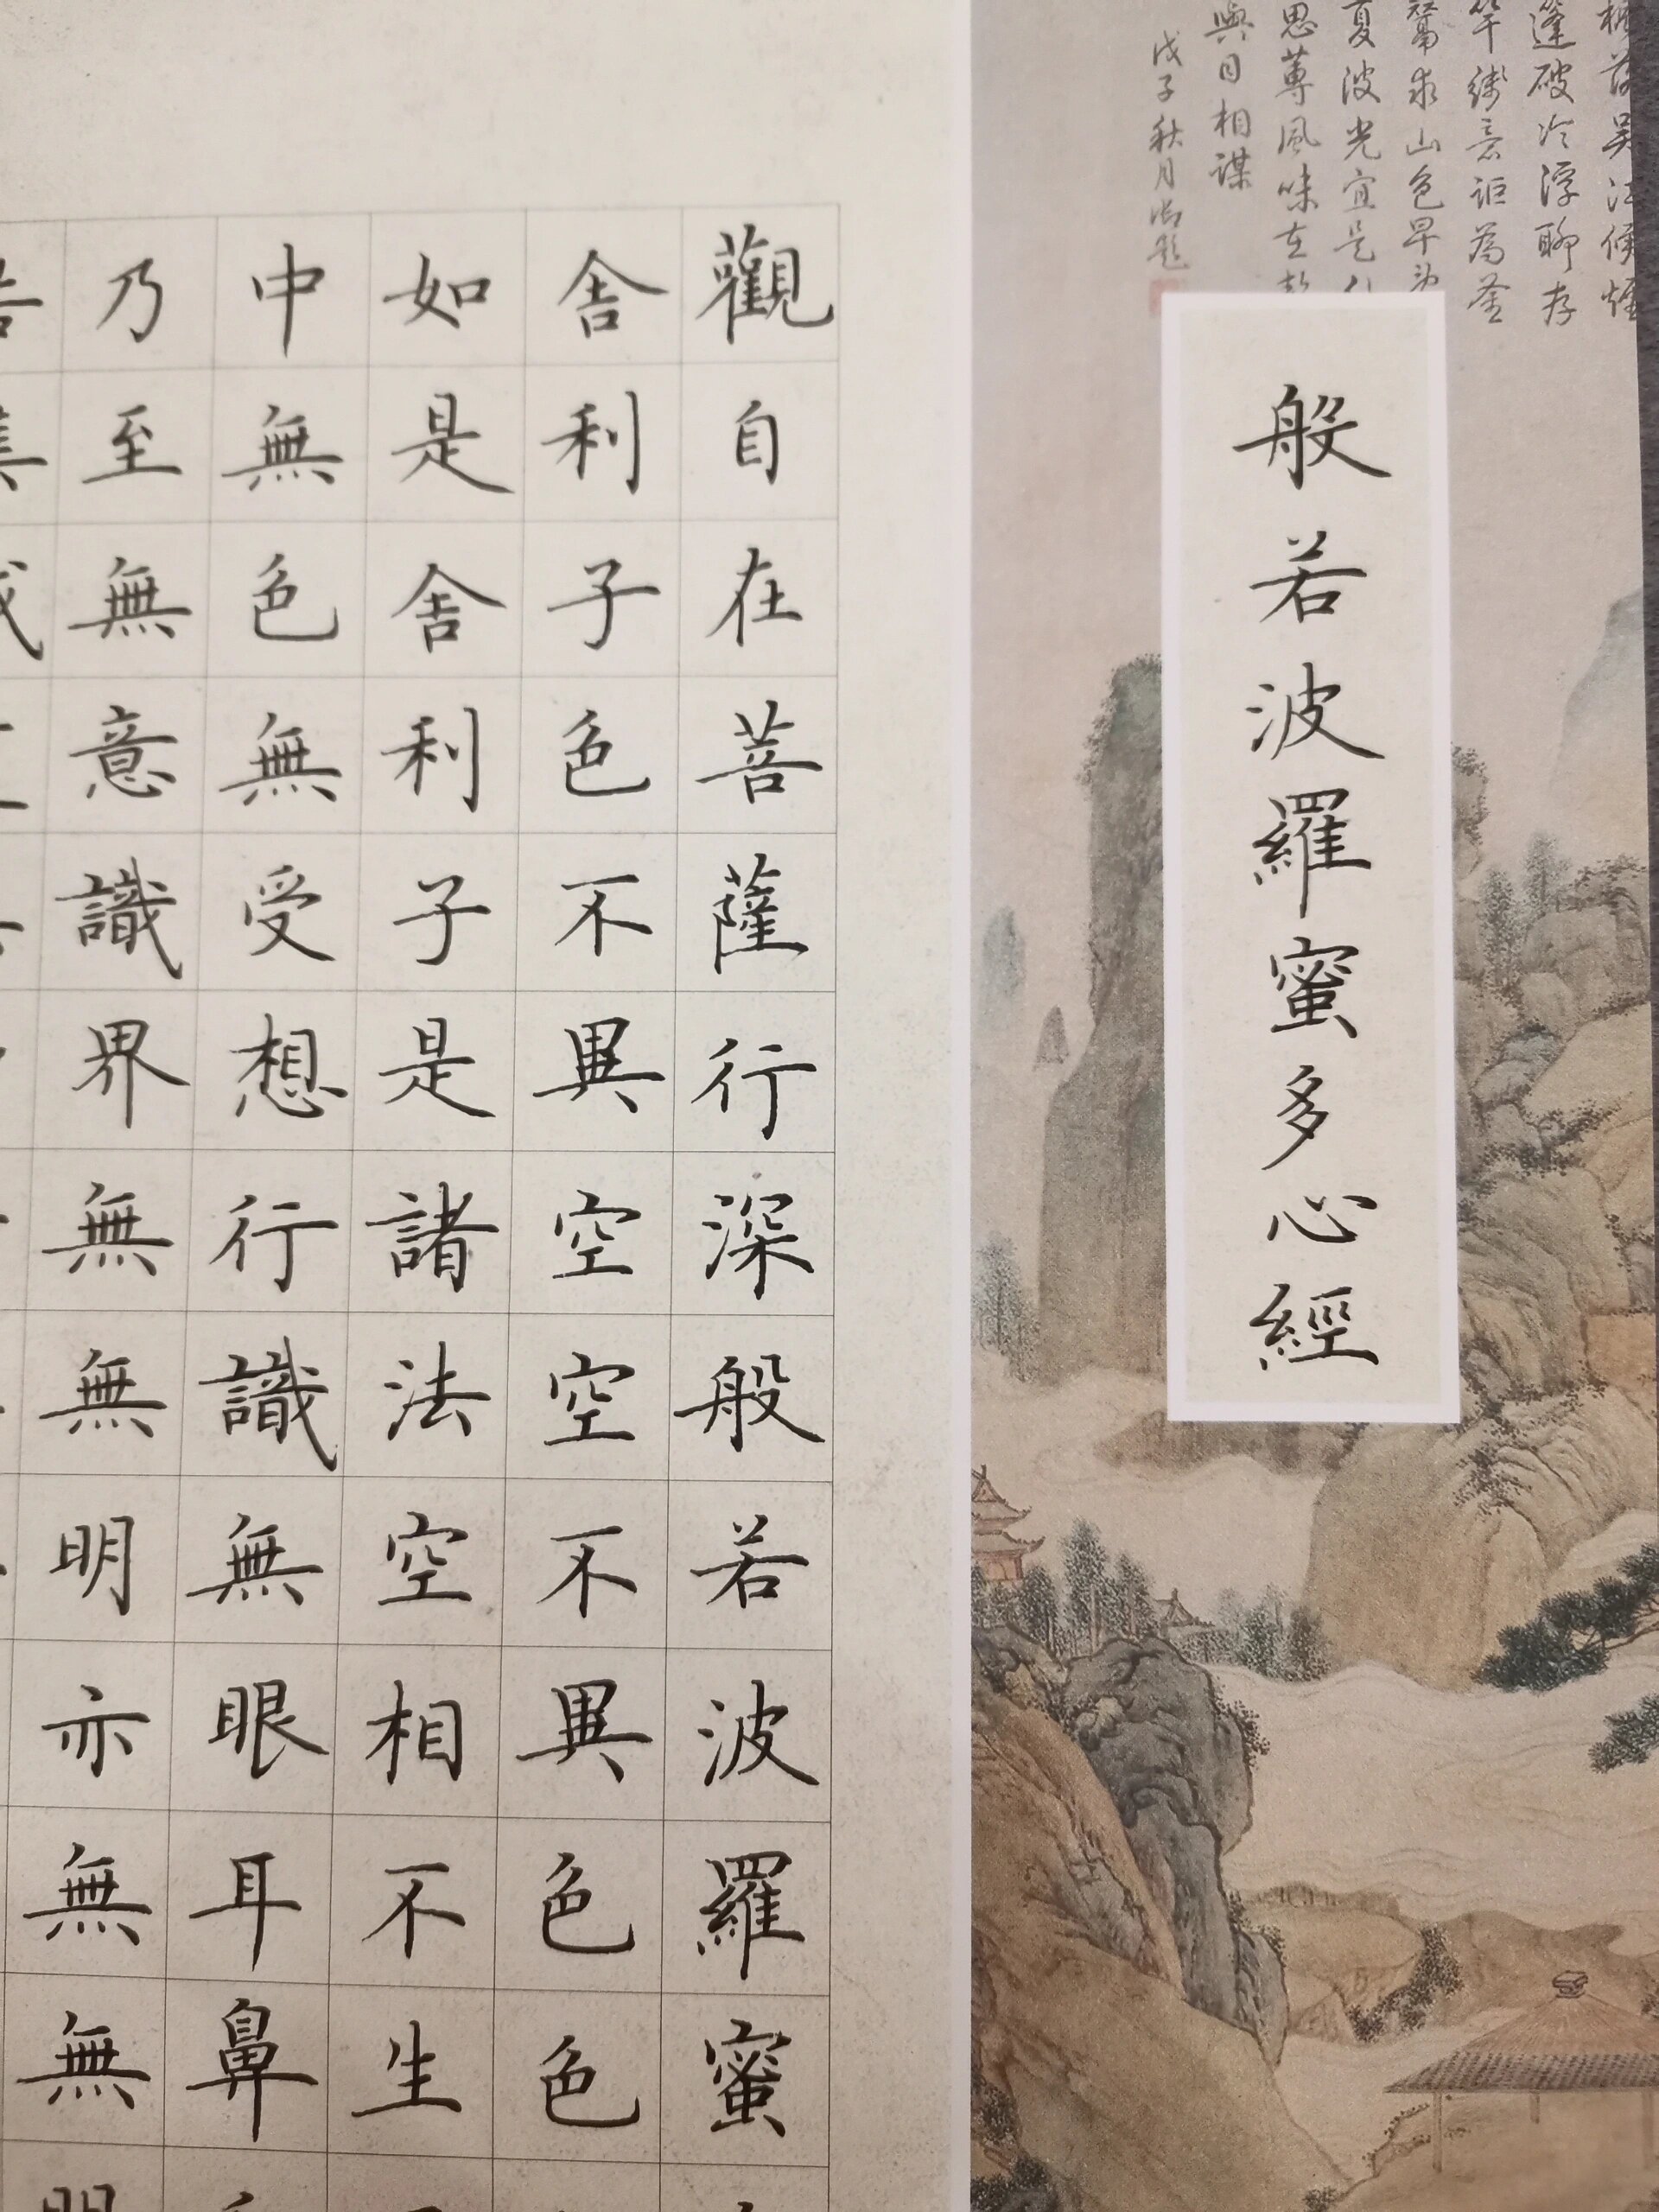 般若波羅蜜多心經
觀自在菩薩行深般若波羅蜜
舍利子色不異空空不異色色
如是舍利子是諸法空相不生
中無色無受想行識無眼耳鼻
乃至無意識界無無明亦無無
篷破冷浮聊存
求山色早
夏波光宜是
思蓴風味在
與日相謀
戊子秋月